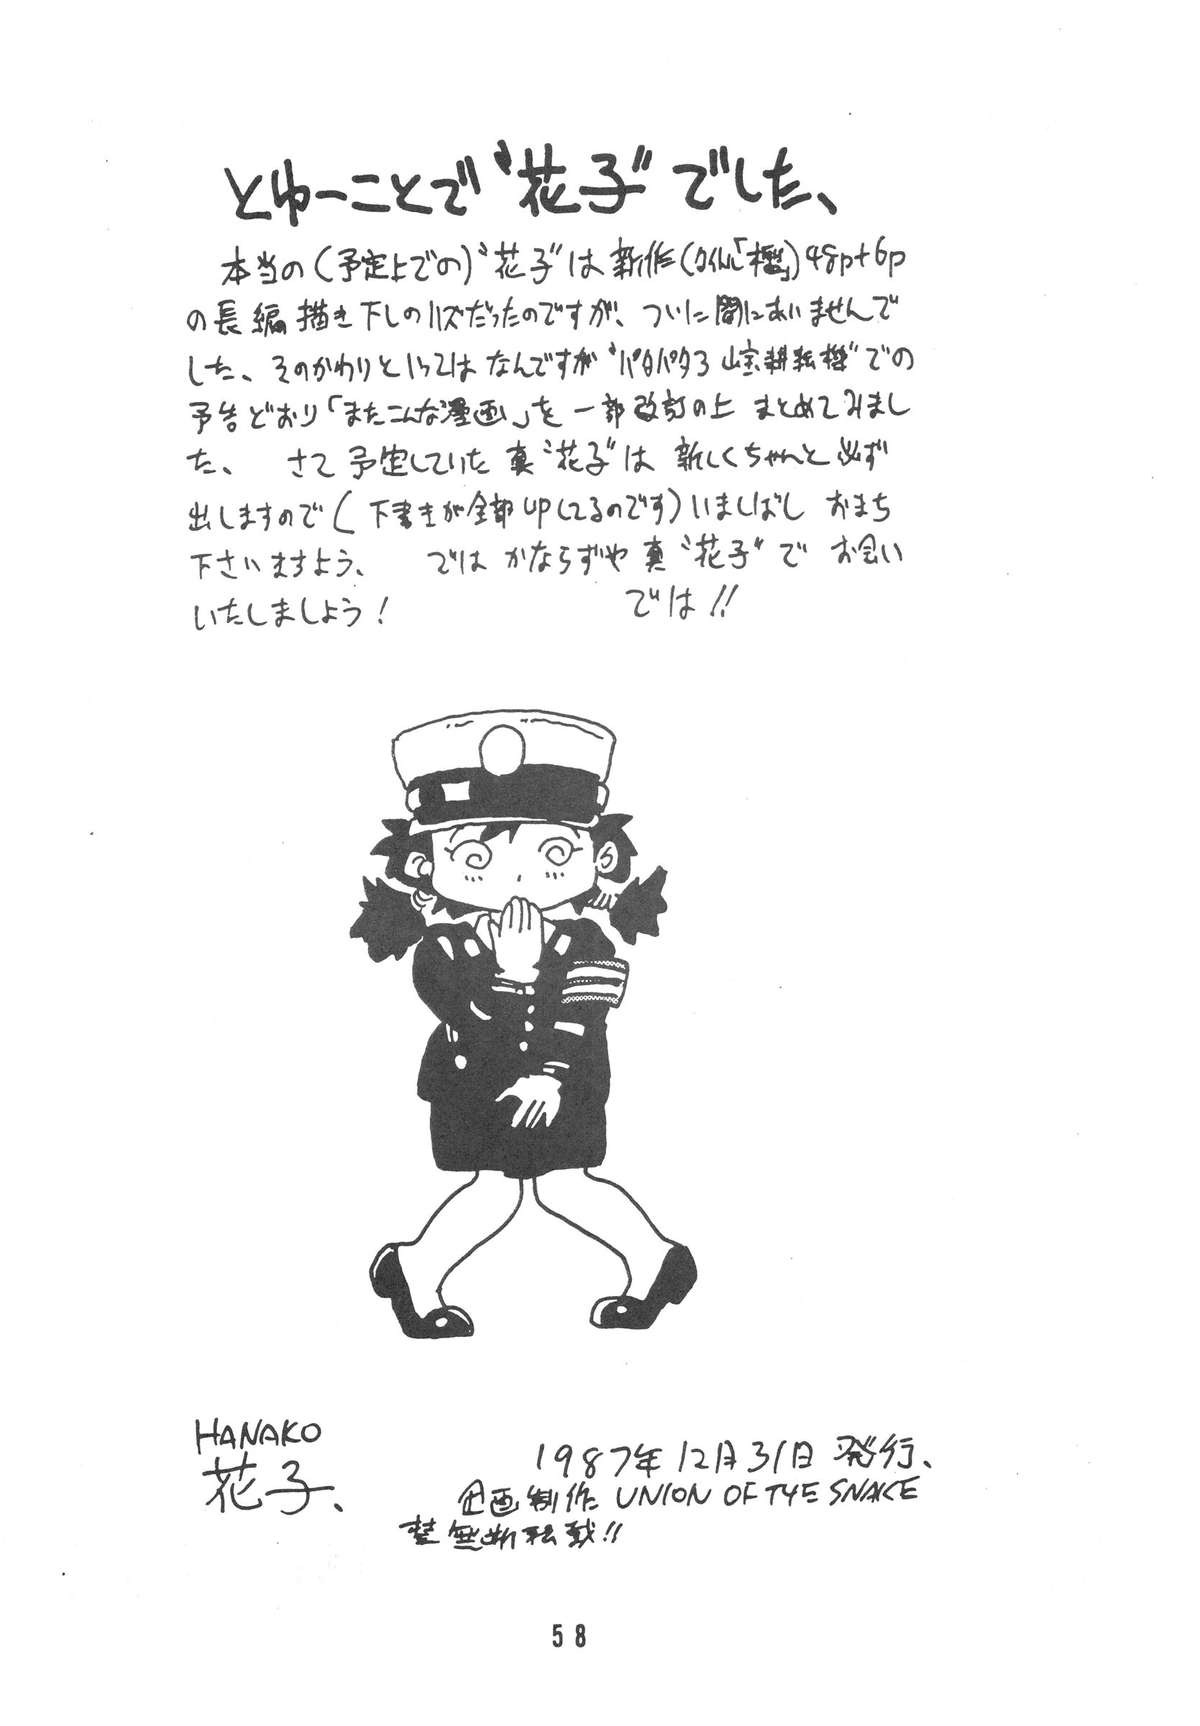 とゆーことで“花子”でした、
本当の（予定上での）“花子”は新作（タイトル「檻」）48p+6p
の長編描き下しのハズだったのですが、ついに間にあいませんで
した、そのかわりといってはなんですが“パタパタ3 山宝耕耘機”での
予告どおり「またこんな漫画」を一部改訂の上 まとめてみまし
た、 さて予定していた真“花子”は新しくちゃんと必ず
出しますので（下書きが全部UPしてるのです）いましばし おまち
下さいますよう、 では かならずや真“花子”で お会い
いたしましょう！ では!!
HANAKO
花子、
1987年12月31日 発行、
企画制作 UNION OF THE SNAKE
禁無断転載!!
58